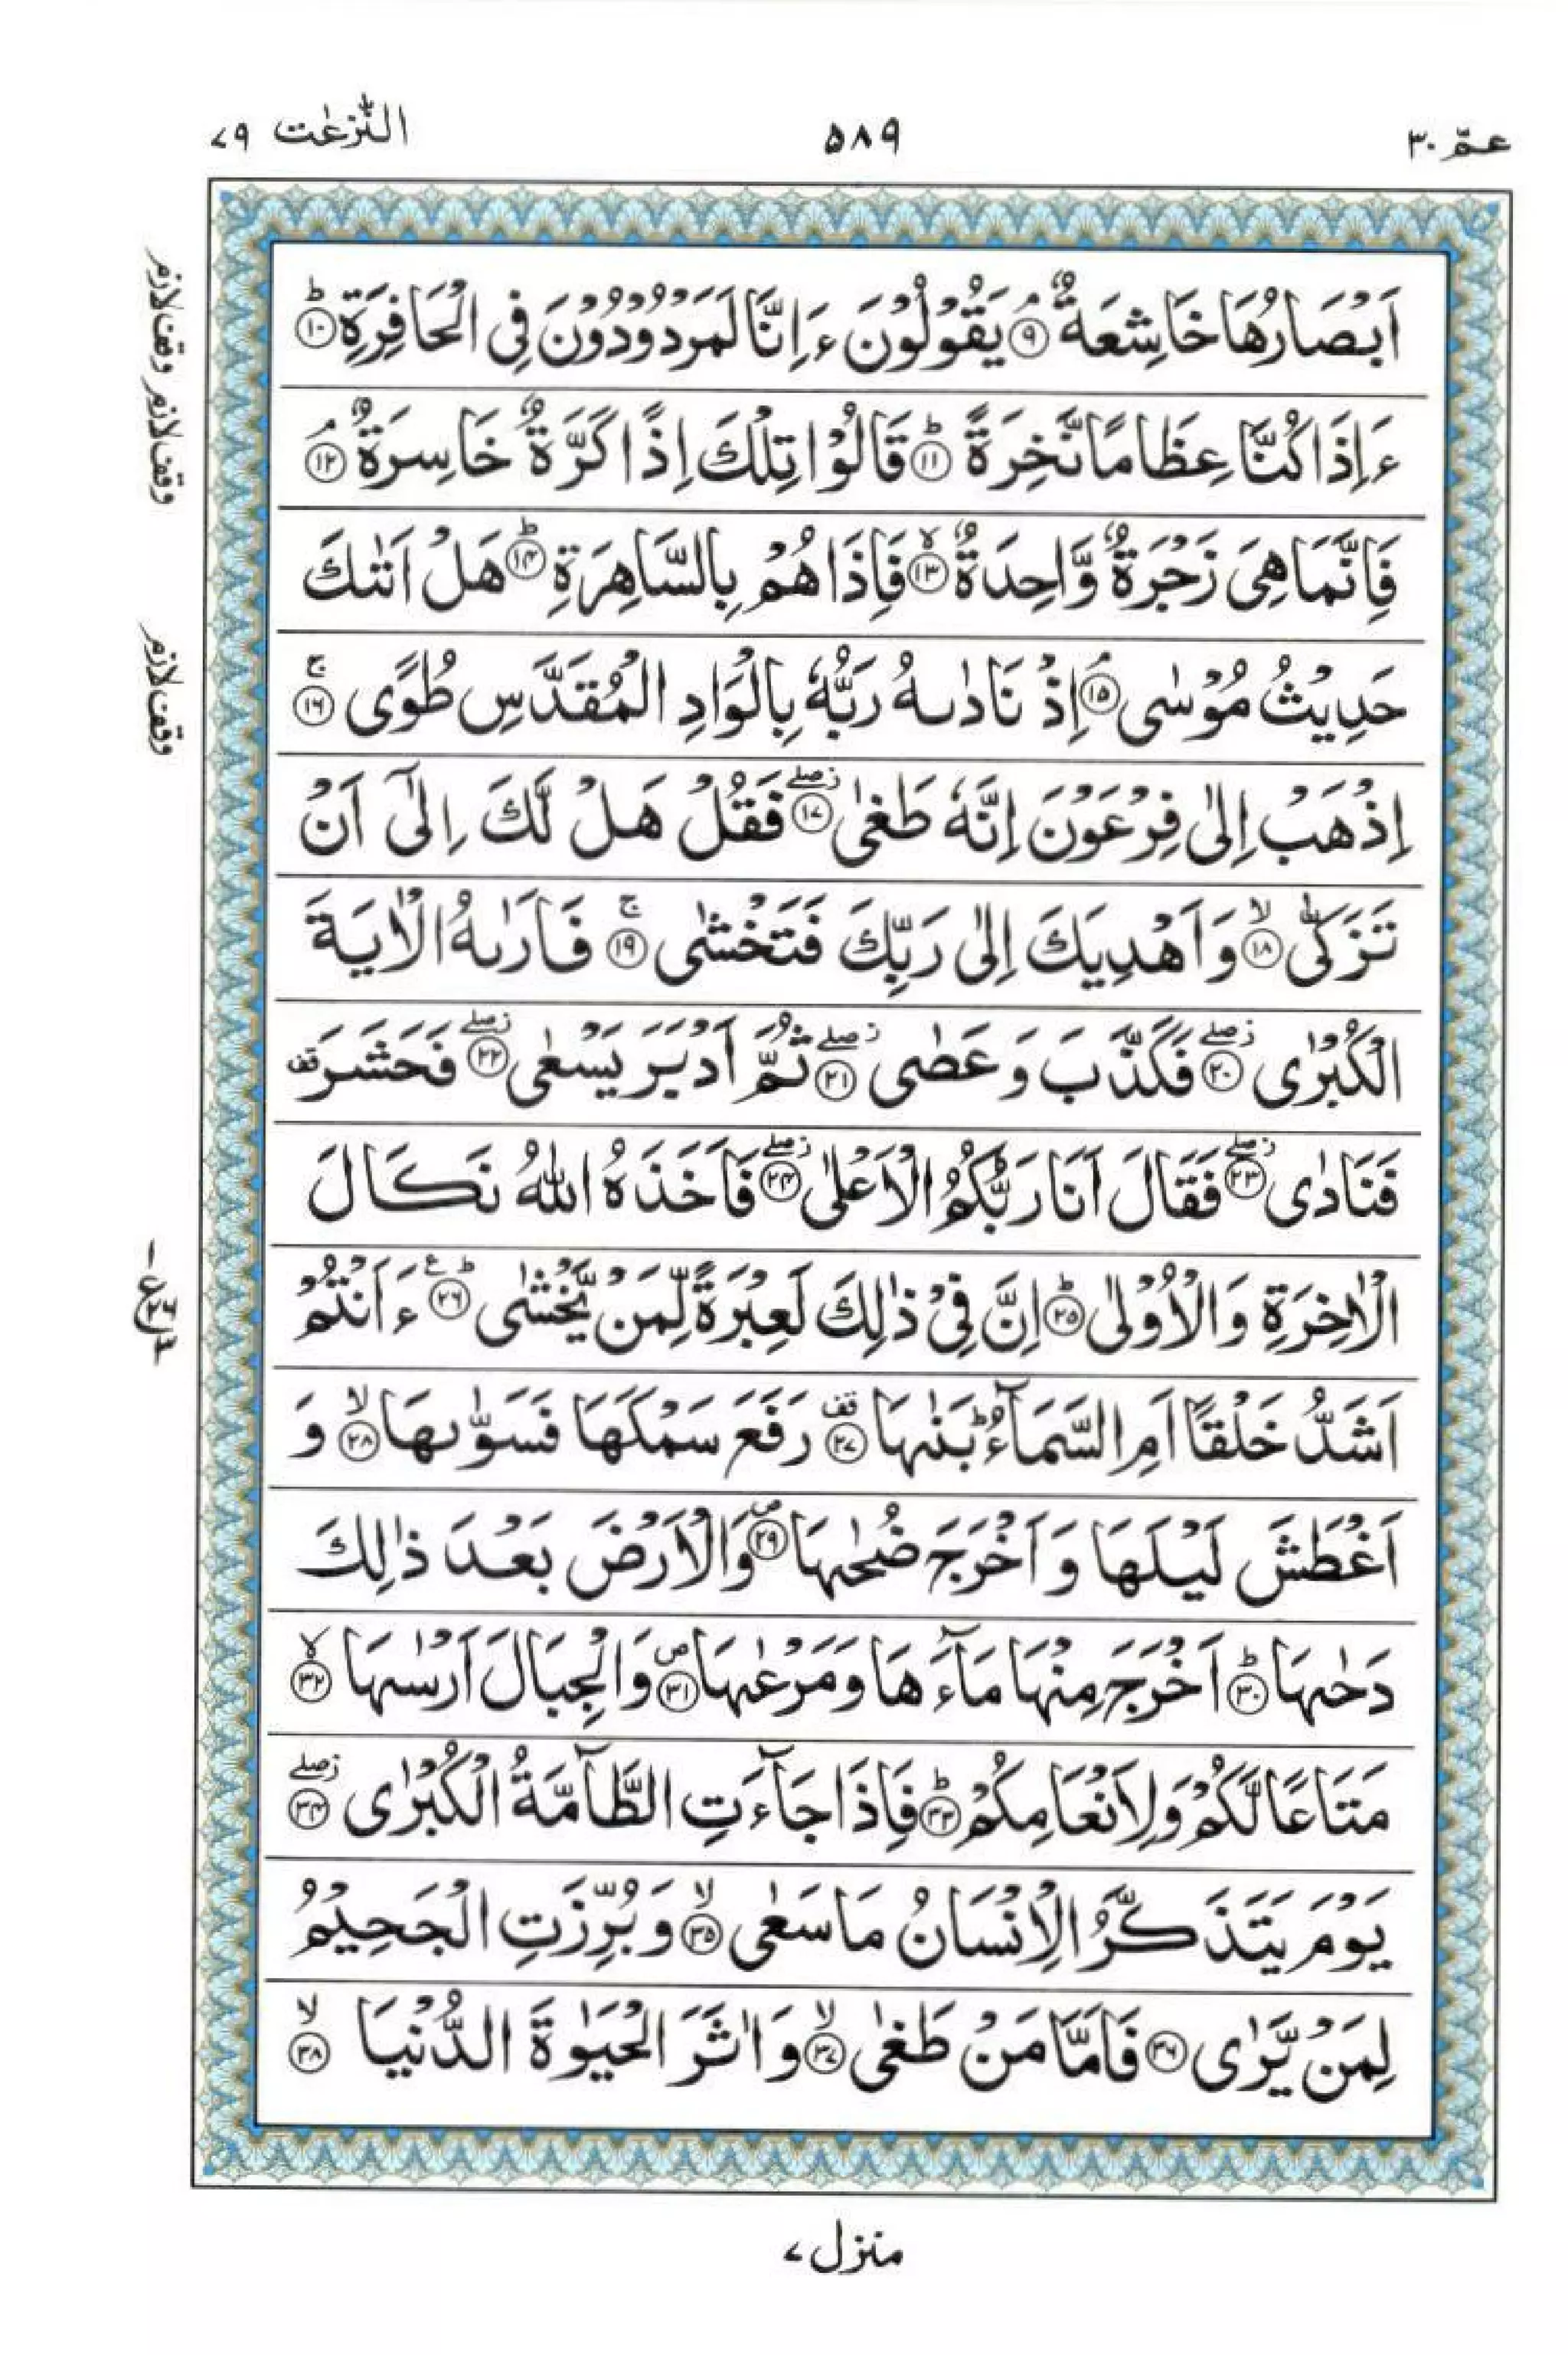 عـمّ ۳۰
۵۸۹
النّٰزعٰت ۷۹
اَبْصَارُهَا خَاشِعَةٌ ۘ‏ ﴿۹﴾ يَقُوْلُوْنَ ءَاِنَّا لَمَرْدُوْدُوْنَ فِى الْحَافِرَةِ ؕ‏ ﴿۱۰﴾
ءَاِذَا كُنَّا عِظَامًا نَّخِرَةً ؕ‏ ﴿۱۱﴾ قَالُوْا تِلْكَ اِذًا كَرَّةٌ خَاسِرَةٌ ۘ‏ ﴿۱۲﴾
فَاِنَّمَا هِىَ زَجْرَةٌ وَّاحِدَةٌ ۙ‏ ﴿۱۳﴾ فَاِذَا هُمْ بِالسَّاهِرَةِ ؕ‏ ﴿۱۴﴾ هَلْ اَتٰٮكَ
حَدِيْثُ مُوْسٰى‌ ۘ‏ ﴿۱۵﴾ اِذْ نَادٰٮهُ رَبُّهٗ بِالْوَادِ الْمُقَدَّسِ طُوًى‌ۚ‏ ﴿۱۶﴾
اِذْهَبْ اِلٰى فِرْعَوْنَ اِنَّهٗ طَغٰى ۖ‏ ﴿۱۷﴾ فَقُلْ هَلْ لَّكَ اِلٰٓى اَنْ
تَزَكّٰى ۙ‏ ﴿۱۸﴾ وَاَهْدِيَكَ اِلٰى رَبِّكَ فَتَخْشٰى‌ۚ‏ ﴿۱۹﴾ فَاَرٰٮهُ الْاٰيَةَ
الْكُبْرٰى ۖ‏ ﴿۲۰﴾ فَكَذَّبَ وَعَصٰى ۖ‏ ﴿۲۱﴾ ثُمَّ اَدْبَرَ يَسْعٰى ۖ‏ ﴿۲۲﴾ فَحَشَرَ قف
فَنَادٰى ۖ‏ ﴿۲۳﴾ فَقَالَ اَنَا رَبُّكُمُ الْاَعْلٰى ۖ‏ ﴿۲۴﴾ فَاَخَذَهُ اللّٰهُ نَكَالَ
الْاٰخِرَةِ وَالْاُوْلٰى ؕ‏ ﴿۲۵﴾ اِنَّ فِىْ ذٰلِكَ لَعِبْرَةً لِّمَنْ يَّخْشٰى ؕ‏ ﴿۲۶﴾ ءَاَنْتُمْ
اَشَدُّ خَلْقًا اَمِ السَّمَآءُ‌ ؕ بَنٰٮهَا قف ﴿۲۷﴾ رَفَعَ سَمْكَهَا فَسَوّٰٮهَا ۙ‏ ﴿۲۸﴾ وَ
اَغْطَشَ لَيْلَهَا وَاَخْرَجَ ضُحٰٮهَا ص ﴿۲۹﴾ وَالْاَرْضَ بَعْدَ ذٰلِكَ
دَحٰٮهَا ؕ‏ ﴿۳۰﴾ اَخْرَجَ مِنْهَا مَآءَهَا وَمَرْعٰٮهَا ص ﴿۳۱﴾ وَالْجِبَالَ اَرْسٰٮهَا ۙ‏ ﴿۳۲﴾
مَتَاعًا لَّكُمْ وَلِاَنْعَامِكُمْ ؕ‏ ﴿۳۳﴾ فَاِذَا جَآءَتِ الطَّآمَّةُ الْكُبْرٰى ۖ‏ ﴿۳۴﴾
يَوْمَ يَتَذَكَّرُ الْاِنْسَانُ مَا سَعٰى ۙ‏ ﴿۳۵﴾ وَبُرِّزَتِ الْجَحِيْمُ
لِمَنْ يَّرٰى‏ ﴿۳۶﴾ فَاَمَّا مَنْ طَغٰى ۙ‏ ﴿۳۷﴾ وَاٰثَرَ الْحَيٰوةَ الدُّنْيَا ۙ‏ ﴿۳۸﴾
وقف لازم
وقف لازم
وقف لازم
منزل ۷